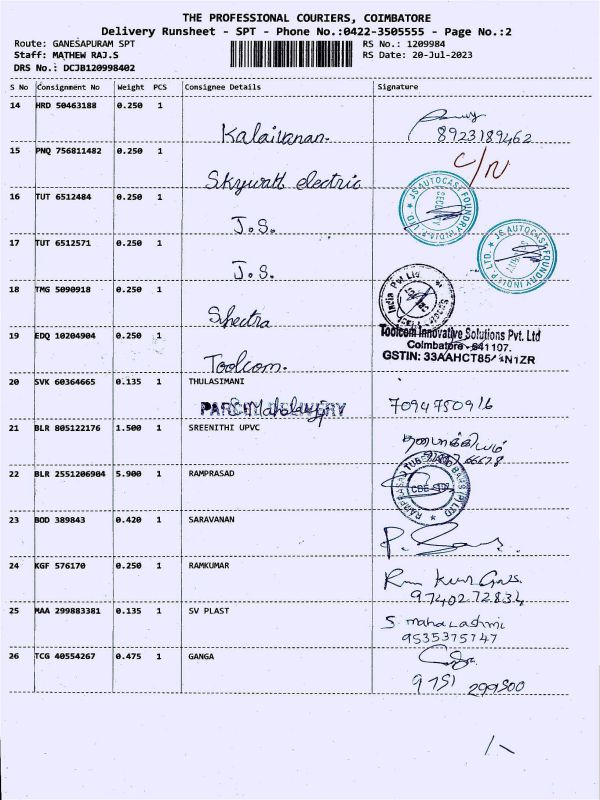 THE PROFESSIONAL COURIERS, COIMBATORE
Delivery Runsheet - SPT - Phone No.:0422-3505555 - Page No.:2
Route: GANESAPURAM SPT
RS No.: 1209984
Staff: MATHEW RAJ.S
RS Date: 20-Jul-2023
DRS No.: DCJB120998402
S No Consignment No Weight PCS Consignee Details Signature
14 HRD 50463188 0.250 1
Kalaivanan. 8923189462
15 PNQ 756811482 0.250 1
C/N
Skywatt electric
16 TUT 6512484 0.250 1
J.S. JS AUTOCAST FOUNDRY INDIA P. LTD. SECURITY
17 TUT 6512571 0.250 1
J.S. JS AUTOCAST FOUNDRY INDIA P. LTD.
18 TMG 5090918 0.250 1
Spectra India Pvt Ltd
19 EDQ 10204904 0.250 1
Toolcom. Toolcom Innovative Solutions Pvt. Ltd
Coimbatore - 641107.
GSTIN: 33AAHCT85 N1ZR
20 SVK 60364665 0.135 1 THULASIMANI
7094750916
21 BLR 805122176 1.500 1 SREENITHI UPVC
22 BLR 2551206904 5.900 1 RAMPRASAD
RAMPRASAD TUBES BARS (P) LTD
23 BOD 389843 0.420 1 SARAVANAN
24 KGF 576170 0.250 1 RAMKUMAR
9740272834
25 MAA 299883381 0.135 1 SV PLAST
S maha Lashmi
9535375747
26 TCG 40554267 0.475 1 GANGA
9751 299500